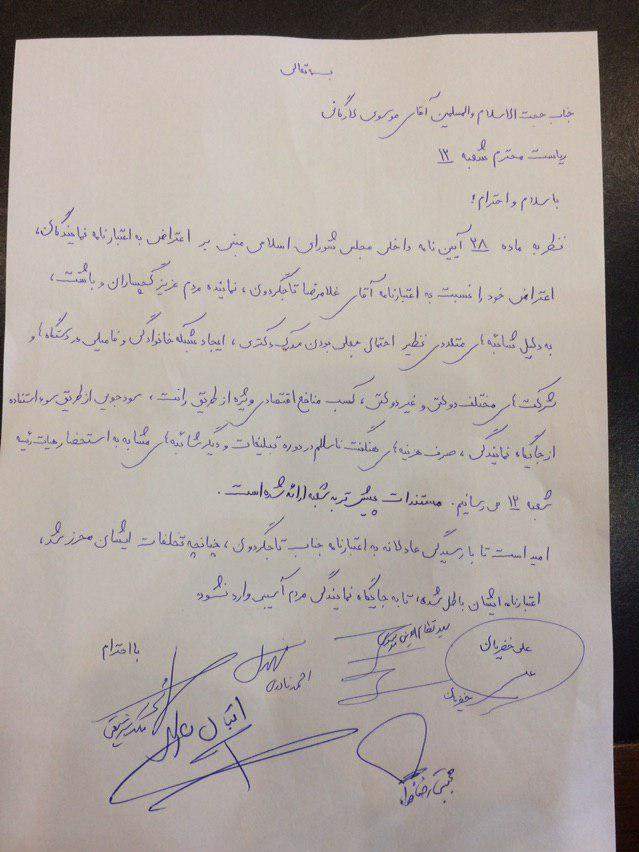 بسمه تعالی
جناب حجت الاسلام والمسلمین آقای موسوی لارگانی
ریاست محترم شعبه ۱۲
با سلام و احترام؛
نظر به ماده ۲۸ آیین نامه داخلی مجلس شورای اسلامی مبنی بر اعتراض به اعتبارنامه نمایندگان،
اعتراض خود را نسبت به اعتبارنامه آقای غلامرضا تاجگردون، نماینده مردم عزیز گچساران و باشت،
به دلیل شائبه های متعددی نظیر احتمال جعلی بودن مدرک دکتری، ایجاد شبکه خانوادگی و فامیلی در دستگاه ها و
شرکت های مختلف دولتی و غیر دولتی، کسب منافع اقتصادی ویژه از طریق رانت، سودجویی از طریق سوء استفاده
از جایگاه نمایندگی، صرف هزینه های هنگفت ناسالم در دوره تبلیغات و دیگر شائبه های مشابه به استحضار هیات رئیسه
شعبه ۱۲ می رسانیم. مستندات پیش تر به شعبه ارائه شده است.
امید است تا با رسیدگی عادلانه به اعتبارنامه جناب تاجگردون، چنانچه تخلفات ایشان محرز شد،
اعتبارنامه ایشان باطل شده، تا به جایگاه نمایندگی مردم آسیبی وارد نشود
با احترام
علی خضریان
علی خضریان
سید نظام الدین موسوی
احمد نادری
مالک شریعتی
اقبال
مجتبی رضاخواه